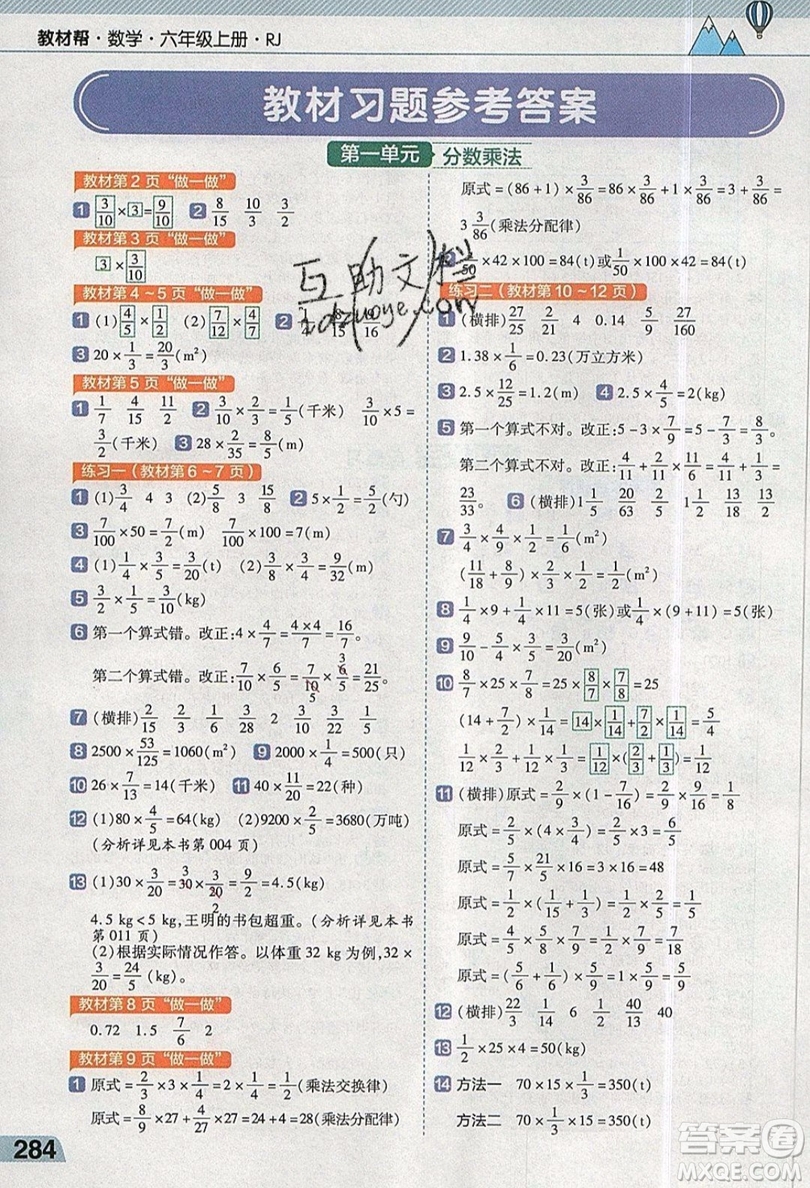 教材帮·数学·六年级上册·RJ
教材习题参考答案
第一单元 分数乘法
教材第2页“做一做”
1 3/10×3=9/10 2 8/15 10/3 3/2
教材第3页“做一做”
3×3/10
教材第4~5页“做一做”
1 (1)4/5×1/2 (2)7/12×4/7 2
3 20×1/3=20/3(m²)
教材第5页“做一做”
1 1/7 4/15 11/2 2 3/10×2/3=1/5(千米) 3/10×5=
3/2(千米) 3 28×2/35=8/5(m)
练习一(教材第6~7页)
1 (1)3/4 4 3 (2)5/8 3 15/8 2 5×1/2=5/2(勺)
3 7/100×50=7/2(m) 7/100×100=7(m)
4 (1)1/4×3/5=3/20(t) (2)3/8×3/4=9/32(t)
5 3/2×1/5=3/10(kg)
6 第一个算式错。改正:4×4/7=4×4/7=16/7。
第二个算式错。改正:7/10×6/5=7/10×6/5=21/25。
7 (横排)2/15 2/15 3/4 1/6 2/3 3/10 3/22 3/5
8 2500×53/125=1060(m²) 9 2000×1/4=500(只)
10 26×7/13=14(千米) 11 40×11/20=22(种)
12 (1)80×4/5=64(kg) (2)9200×2/5=3680(万吨)
(分析详见本书第004页)
13 (1)30×3/20=30×3/20=9/2=4.5(kg)
4.5 kg<5 kg,王明的书包超重。(分析详见本书
第011页)
(2)根据实际情况作答。以体重32 kg为例,32×
3/20=24/5(kg)
教材第8页“做一做”
0.72 1.5 7/6 2
教材第9页“做一做”
1 原式=2/3×3×1/4=2×1/4=1/2(乘法交换律)
原式=8/9×27+4/27×27=24+4=28(乘法分配律)
284
原式=(86+1)×3/86=86×3/86+1×3/86=3+3/86=
3 3/86(乘法分配律)
2 1/50×42×100=84(t)或1/50×100×42=84(t)
练习二(教材第10~12页)
1 (横排)27/25 2/21 4 0.14 5/9 27/160
2 1.38×1/6=0.23(万立方米)
3 2.5×12/25=1.2(m) 4 2.5×4/5=2(kg)
5 第一个算式不对。改正:5-3×7/9=5-7/3=8/3。
第二个算式不对。改正:4/11+2/11×11/6=4/11+1/3=
23/33。 6 (横排)1 1/5 20/63 2/5 1 13/18 13/2
7 3/4×4/9×1/2+1/2=1/2(m²)
(11/18+8/9)×1/3×1/2=1/4(m²)
8 1/4×9+1/4×11=5(张)或1/4×(9+11)=5(张)
9 9/10-5/4×3/5=3/20(m²)
10 8/7×25×7/8=25×8/7×7/8=25
(14+7/2)×1/14=14×1/14+7/2×1/14=5/4
1/12×2/3+1/3×1/12=1/12×(2/3+1/3)=1/12
11 (横排)原式=2/9×(1-7/16)=2/9×9/16=1/8
原式=2/5×(4×3/4)=2/5×3=6/5
原式=5/7×21/5×16=3×16=48
原式=1/2×(1/5+4/5)=1/2×1=1/2
原式=4/5×5/8×10/9=1/2×10/9=5/9
原式=(5/6+1/6)×5/9=1×5/9=5/9
12 (横排)22/3 1/14 8/15 1/12 33/40 40
13 1/2×25×4=50(kg)
14 方法一 70×15×1/3=350(t)
方法二 70×1/3×15=350(t)
互助文档
MXQE.COM